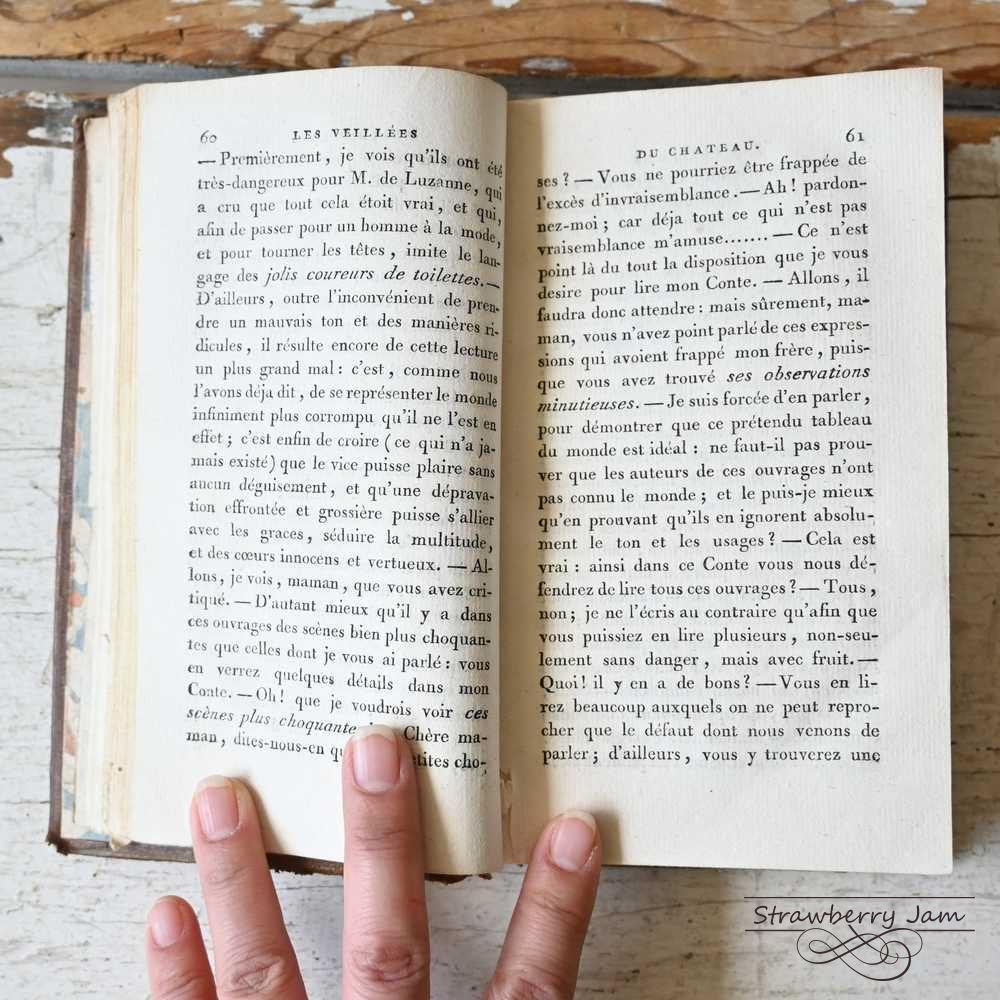 60 LES VEILLÉES
— Premièrement, je vois qu'ils ont été
très-dangereux pour M. de Luzanne, qui
a cru que tout cela étoit vrai, et qui,
afin de passer pour un homme à la mode,
et pour tourner les têtes, imite le lan-
gage des jolis coureurs de toilettes. —
D'ailleurs, outre l'inconvénient de pren-
dre un mauvais ton et des manières ri-
dicules, il résulte encore de cette lecture
un plus grand mal : c'est, comme nous
l'avons déja dit, de se représenter le monde
infiniment plus corrompu qu'il ne l'est en
effet ; c'est enfin de croire (ce qui n'a ja-
mais existé) que le vice puisse plaire sans
aucun déguisement, et qu'une déprava-
tion effrontée et grossière puisse s'allier
avec les graces, séduire la multitude,
et des cœurs innocens et vertueux. — Al-
lons, je vois, maman, que vous avez cri-
tiqué. — D'autant mieux qu'il y a dans
ces ouvrages des scènes bien plus choquan-
tes que celles dont je vous ai parlé : vous
en verrez quelques détails dans mon
Conte. — Oh ! que je voudrois voir ces
scènes plus choquante Chère ma-
man, dites-nous-en etites cho-
DU CHATEAU. 61
ses ? — Vous ne pourriez être frappée de
l'excès d'invraisemblance. — Ah ! pardon-
nez-moi ; car déja tout ce qui n'est pas
vraisemblance m'amuse....... — Ce n'est
point là du tout la disposition que je vous
desire pour lire mon Conte. — Allons, il
faudra donc attendre : mais sûrement, ma-
man, vous n'avez point parlé de ces expres-
sions qui avoient frappé mon frère, puis-
que vous avez trouvé ses observations
minutieuses. — Je suis forcée d'en parler,
pour démontrer que ce prétendu tableau
du monde est idéal : ne faut-il pas prou-
ver que les auteurs de ces ouvrages n'ont
pas connu le monde ; et le puis-je mieux
qu'en prouvant qu'ils en ignorent absolu-
ment le ton et les usages ? — Cela est
vrai : ainsi dans ce Conte vous nous dé-
fendrez de lire tous ces ouvrages ? — Tous,
non ; je ne l'écris au contraire qu'afin que
vous puissiez en lire plusieurs, non-seu-
lement sans danger, mais avec fruit. —
Quoi ! il y en a de bons ? — Vous en li-
rez beaucoup auxquels on ne peut repro-
cher que le défaut dont nous venons de
parler ; d'ailleurs, vous y trouverez une
Strawberry Jam